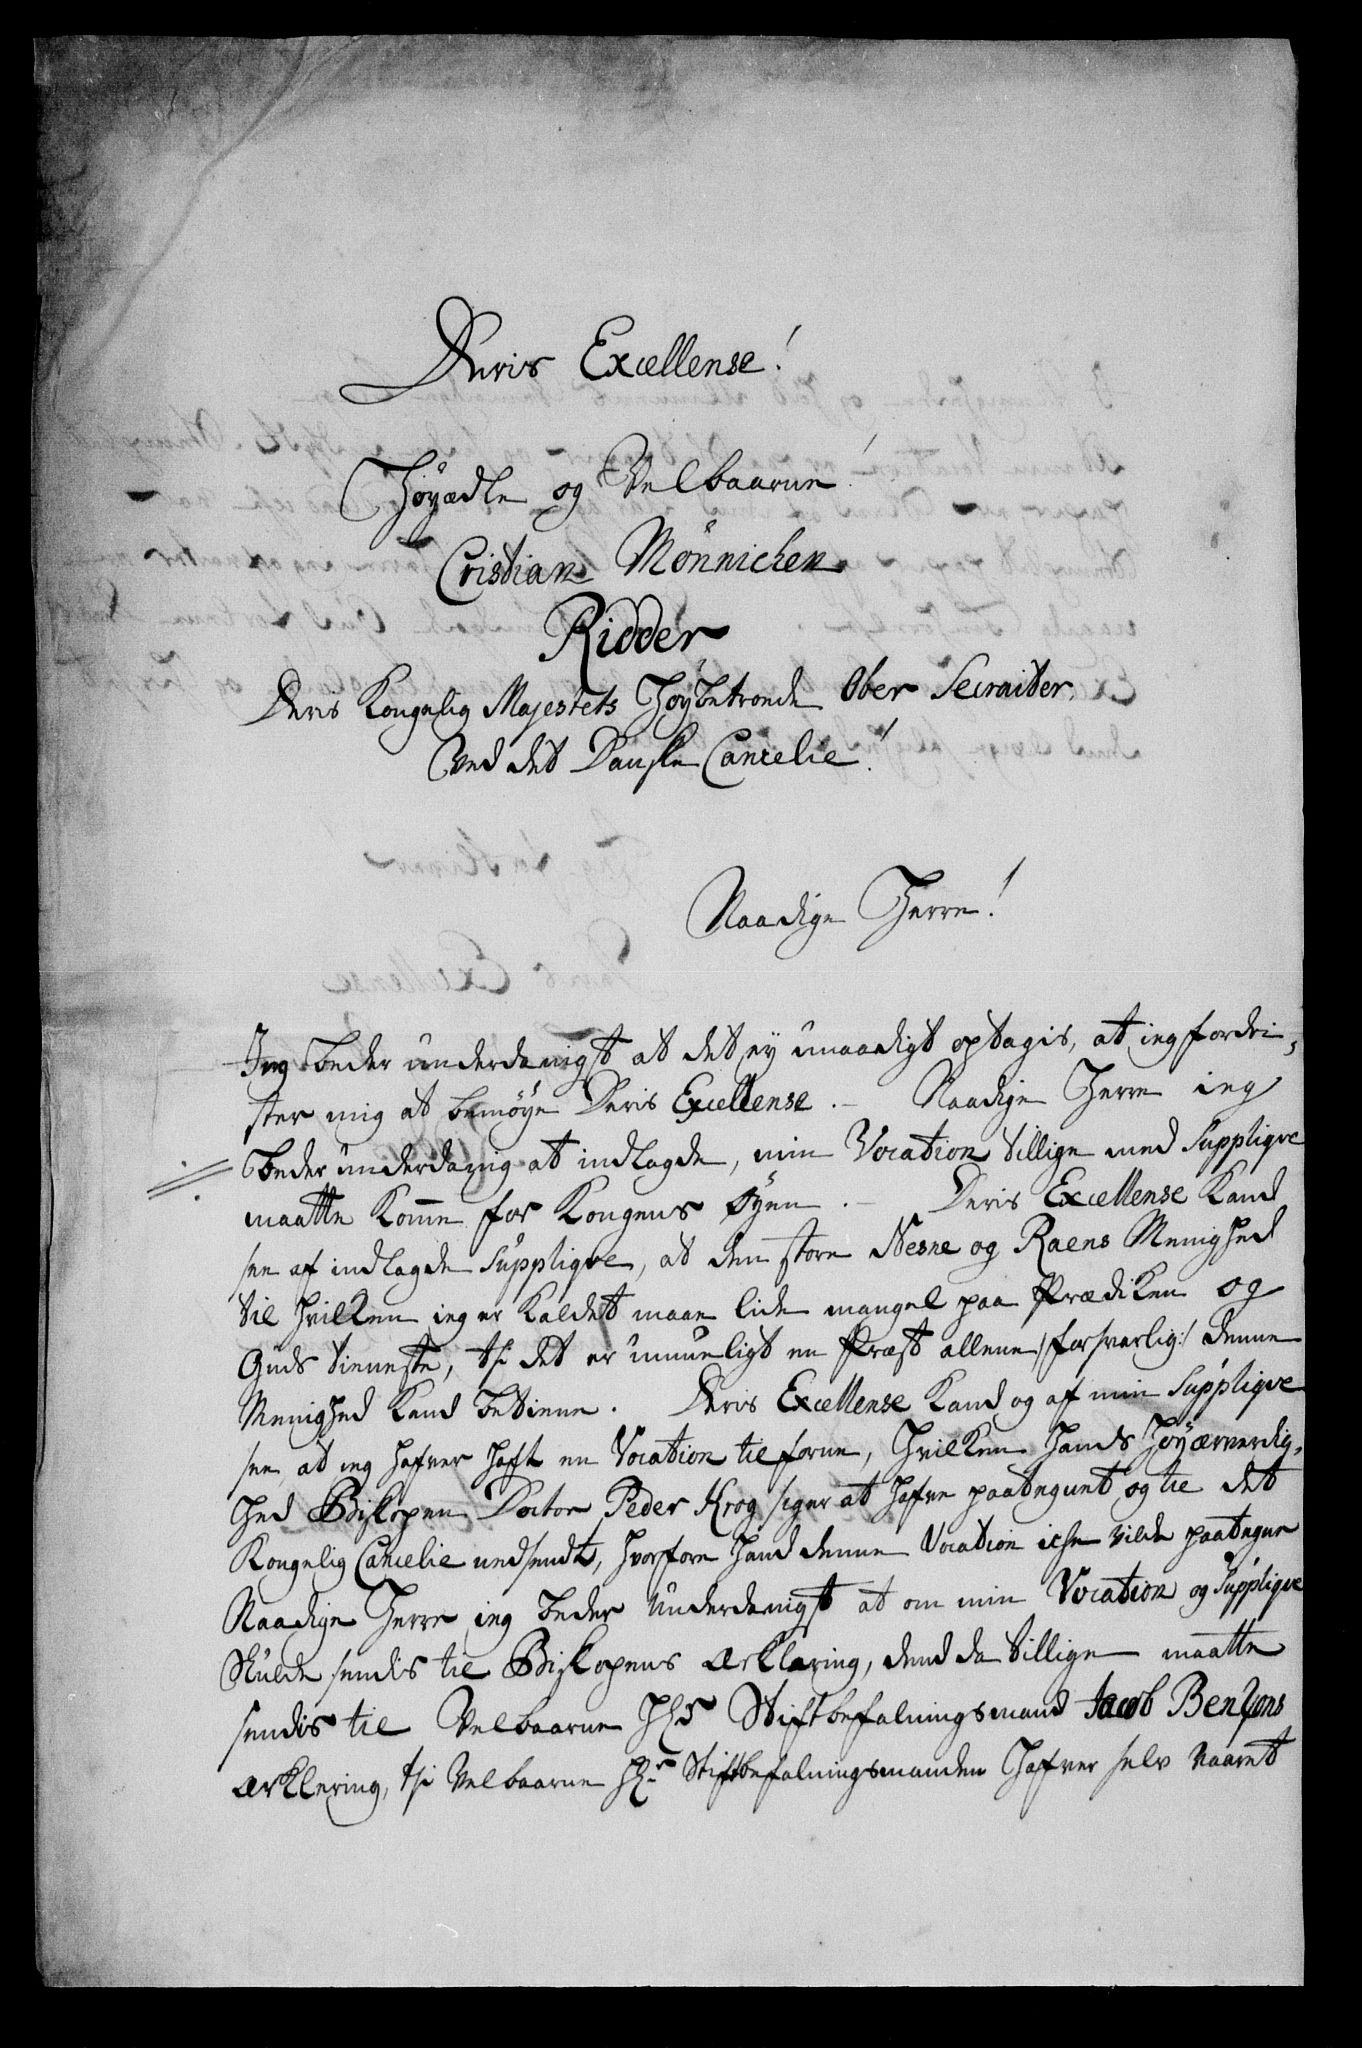 Deris Excellense!
Høyædle og Velbaarne!
Cristian Mönnichen
Ridder
Deris Kongelig Majestets Høybetroede Ober Secraiter.
Ved det Danske Cancelie!
Naadige Herre!
Ieg beder underdanigst at det ey unaadigt optagis, at ieg fordri-
ster mig at bemøye Deris Excellense. – Naadige Herre ieg
beder underdanig at indlagde, min Vocation tillige med Supplique
maatte komme for Kongens Øyen. – Deris Excellense kand
see af indlagde Supplique, at den store Nesne og Raens Menighed
til hvilken ieg er kaldet maae lide mangel paa Prædiken og
Guds tieneste, thi det er umueligt en Præst allene /:forsvarlig:/ denne
Menighed kand betiene. Deris Excellense kand og af min Supplique
see, at ieg hafver haft en Vocation tilforne, hvilken hands Høyærverdig-
hed Biskopen Doctor Peder Krog siger at hafve paategnet og til det
Kongelig Cancelie nedsendt, hvorfore hand denne Vocation icke vilde paategne
Naadige Herre ieg beder Underdanigst at om min Vocation og Supplique
Skulde sendis til Biskopens ærklæring, dend da tillige maatte
sendis til Velbaarne Hr Stiftbefalningsmand Jacob Benzons
ærklering, thi Velbaarne Hr Stiftbefalningsmanden hafver selv vaaret